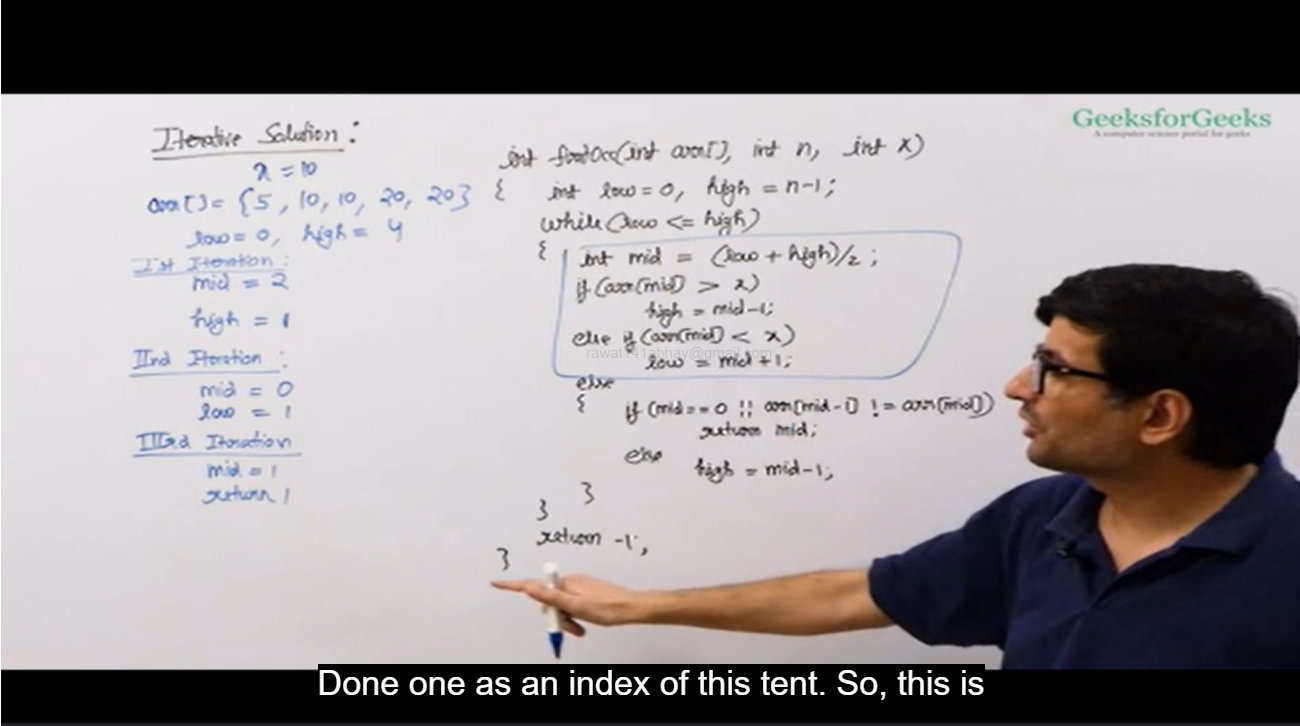 GeeksforGeeks
A computer science portal for geeks
Iterative Solution :
x = 10
arr[] = {5, 10, 10, 20, 20}
low = 0, high = 4
Ist Iteration :
mid = 2
high = 1
IInd Iteration :
mid = 0
low = 1
IIIrd Iteration
mid = 1
return 1
int firstOcc(int arr[], int n, int x)
{ int low = 0, high = n-1;
while(low <= high)
{ int mid = (low + high)/2;
if (arr[mid] > x)
high = mid-1;
else if (arr[mid] < x)
rawat141abhay@gmail.com
low = mid+1;
else
{ if (mid == 0 || arr[mid-1] != arr[mid])
return mid;
else
high = mid-1;
}
}
return -1;
}
Done one as an index of this tent. So, this is